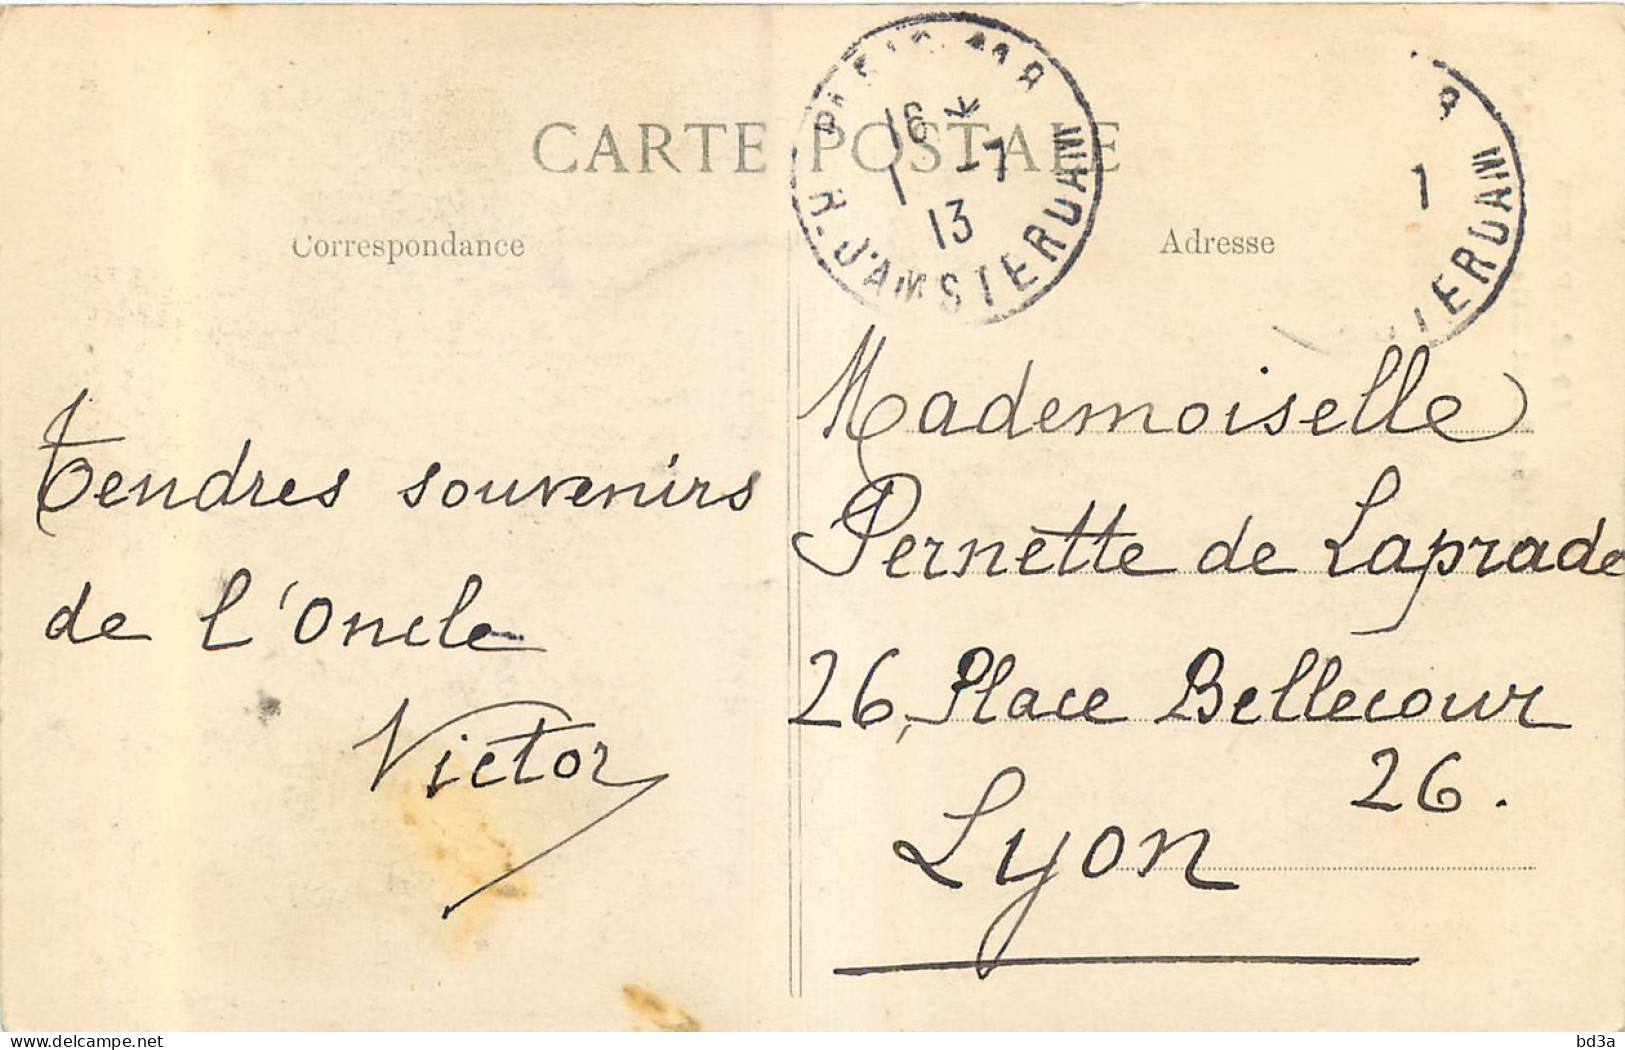 CARTE POSTALE
Correspondance
Adresse
16 *
1 -7
13
R. D'AMSTERDAM
1
TERDAM
Tendres souvenirs
de l'Oncle
Victor
Mademoiselle
Pernette de Laprade
26, Place Bellecour
26.
Lyon
bd3a
delcampe.net